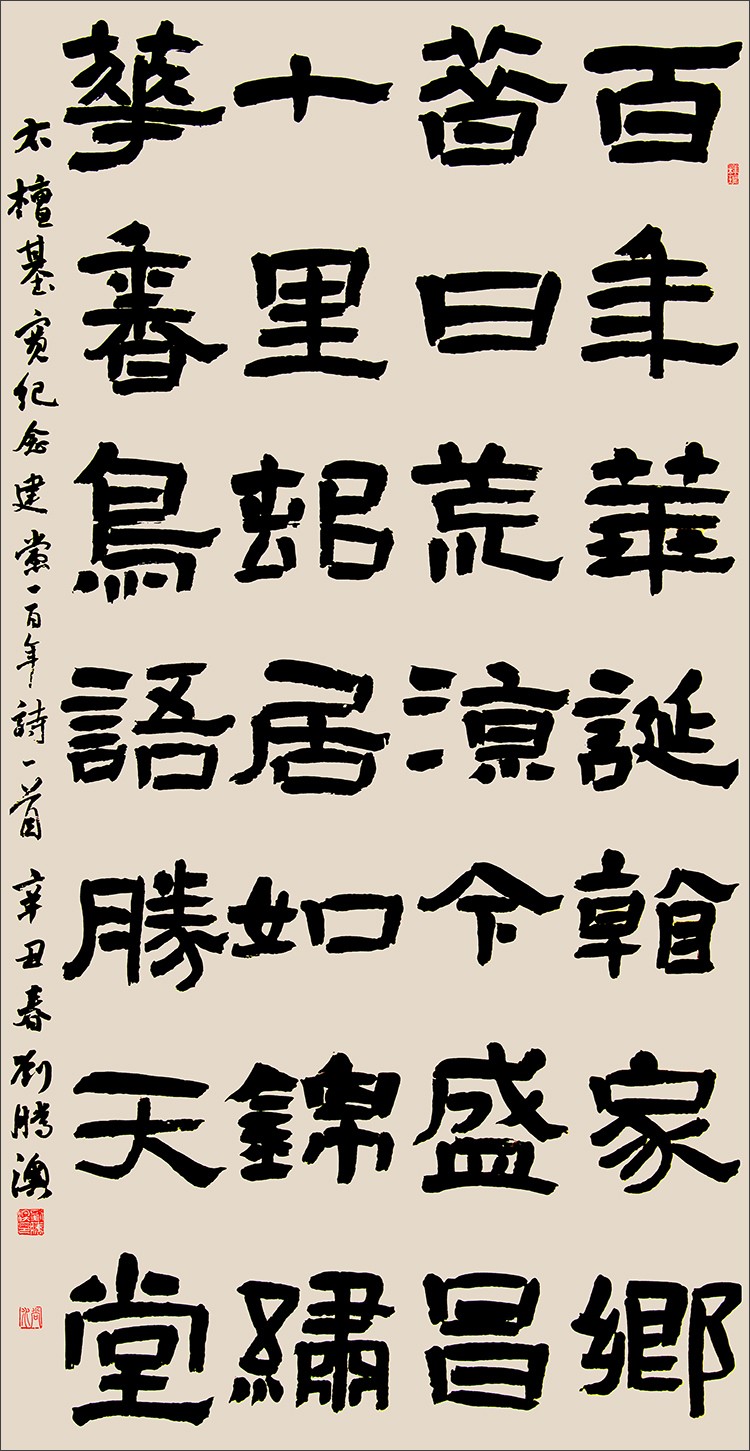 百年華誕家鄉
昔日荒涼今盛昌
十里邨居如錦繡
華香鳥語勝天堂
右檀基紀念建黨一百年詩一首 辛丑春 劉騰